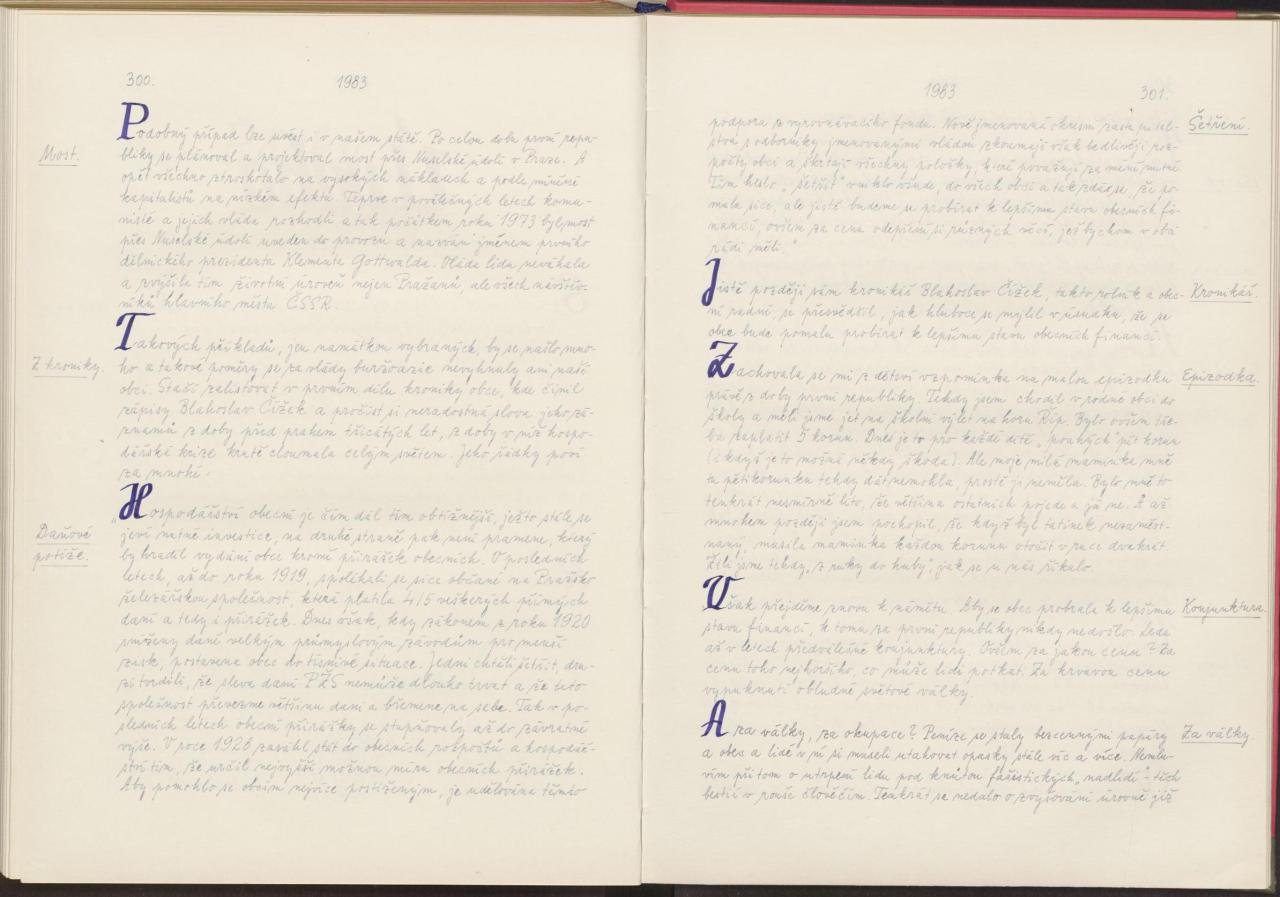 300.
1983
Podobný případ lze uvést i v našem státě. Po celou dobu první repu-
bliky se plánoval a projektoval most přes Nuselské údolí v Praze. A
Most.
opět všechno ztroskotalo na vysokých nákladech a podle mínění
kapitalistů na nízkém efektu. Teprve v poválečných letech komu-
nisté a jejich vláda rozhodli a tak počátkem roku 1973 byl most
přes Nuselské údolí uveden do provozu a nazván jménem prvního
dělnického prezidenta Klementa Gottwalda. Vláda lidu neváhala
a zvýšila tím životní úroveň nejen Pražanů, ale všech návštěv-
níků hlavního města ČSSR.
Takových příkladů, jen namátkou vybraných, by se našlo mno-
Z kroniky.
ho a takové poměry se za vlády buržoazie nevyhnuly ani naší
obci. Stačí zalistovat v prvním dílu kroniky obce, kde činil
zápisy Blahoslav Čížek a pročíst si neradostná slova jeho zá-
znamů z doby před prahem třicátých let, z doby v níž hospo-
dářská krize krutě cloumala celým světem. Jeho řádky poví
za mnohé.
„Hospodářství obecní je čím dál tím obtížnější, ježto stále se
Daňové
potíže.
jeví nutné investice, na druhé straně pak není pramene, který
by hradil vydání obce kromě přirážek obecních. V posledních
letech, až do roku 1919, spoléhali se sice občané na Pražsko
železářskou společnost, která platila 4/5 veškerých přímých
daní a tedy i přirážek. Dnes však, kdy zákonem z roku 1920
sníženy daně velkým průmyslovým závodům pro menší
zisk, postavena obec do tísnivé situace. Jedni chtěli šetřit, dru-
zí tvrdili, že sleva daní PŽS nemůže dlouho trvat a že tato
společnost převezme většinu daní a břemene na sebe. Tak v po-
sledních letech obecní přirážky se stupňovaly až do závratné
výše. V roce 1926 zasáhl stát do obecních rozpočtů a hospodář-
ství tím, že určil nejvyšší možnou míru obecních přirážek.
Aby pomohlo se obcím nejvíce postiženým, je udělována těmto
1983
301.
podpora z vyrovnávacího fondu. Nově jmenovaná okresní zastupitel-
Šetření.
stva s odborníky jmenovanými vládou zkoumají však bedlivěji roz-
počty obcí a škrtají všechny položky, které považují za méně nutné.
Tím heslo „šetřit“ vniklo všude, do všech obcí a tak zdá se, že po-
malu sice, ale jistě budeme se probírat k lepšímu stavu obecních fi-
nancí, ovšem za cenu odepření si různých věcí, jež bychom v obci
rádi měli.“
Jistě později sám kronikář Blahoslav Čížek, takto rolník a obec-
Kronikář.
ní radní, se přesvědčil, jak hluboce se mýlil v úsudku, že se
obec bude pomalu probírat k lepšímu stavu obecních financí.
Zachovala se mi z dětství vzpomínka na malou epizodku
Epizodka.
právě z doby první republiky. Tehdy jsem chodil v rodné obci do
školy a měli jsme jet na školní výlet na horu Říp. Bylo ovšem tře-
ba zaplatit 5 korun. Dnes je to pro každé dítě „pouhých“ pět korun
(i když je to možná někdy škoda). Ale moje milá maminka mně
tu pětikorunku tehdy dát nemohla, prostě ji neměla. Bylo mně to
tenkrát nesmírně líto, že většina ostatních pojede a já ne. A až
mnohem později jsem pochopil, že když byl tatínek nezaměst-
naný, musela maminka každou korunu otočit v ruce dvakrát.
Žili jsme tehdy „z ruky do huby“ jak se u nás říkalo.
Však přejděme znovu k námětu. Aby se obec probrala k lepšímu
Konjunktura.
stavu financí, k tomu za první republiky nikdy nedošlo. Leda
až v letech předválečné konjunktury. Ovšem za jakou cenu? Za
cenu toho nejhoršího, co může lidi potkat. Za krvavou cenu
vypuknutí obludné světové války.
A za války, za okupace? Peníze se staly bezcennými papíry
Za války
a obec a lidé v ní si museli utahovat opasky stále víc a více. Nemlu-
vím přitom o utrpení lidu pod knutou fašistických „nadlidí“ - těch
bestií v rouše člověčím. Tenkrát se nedalo o zvyšování úrovně již